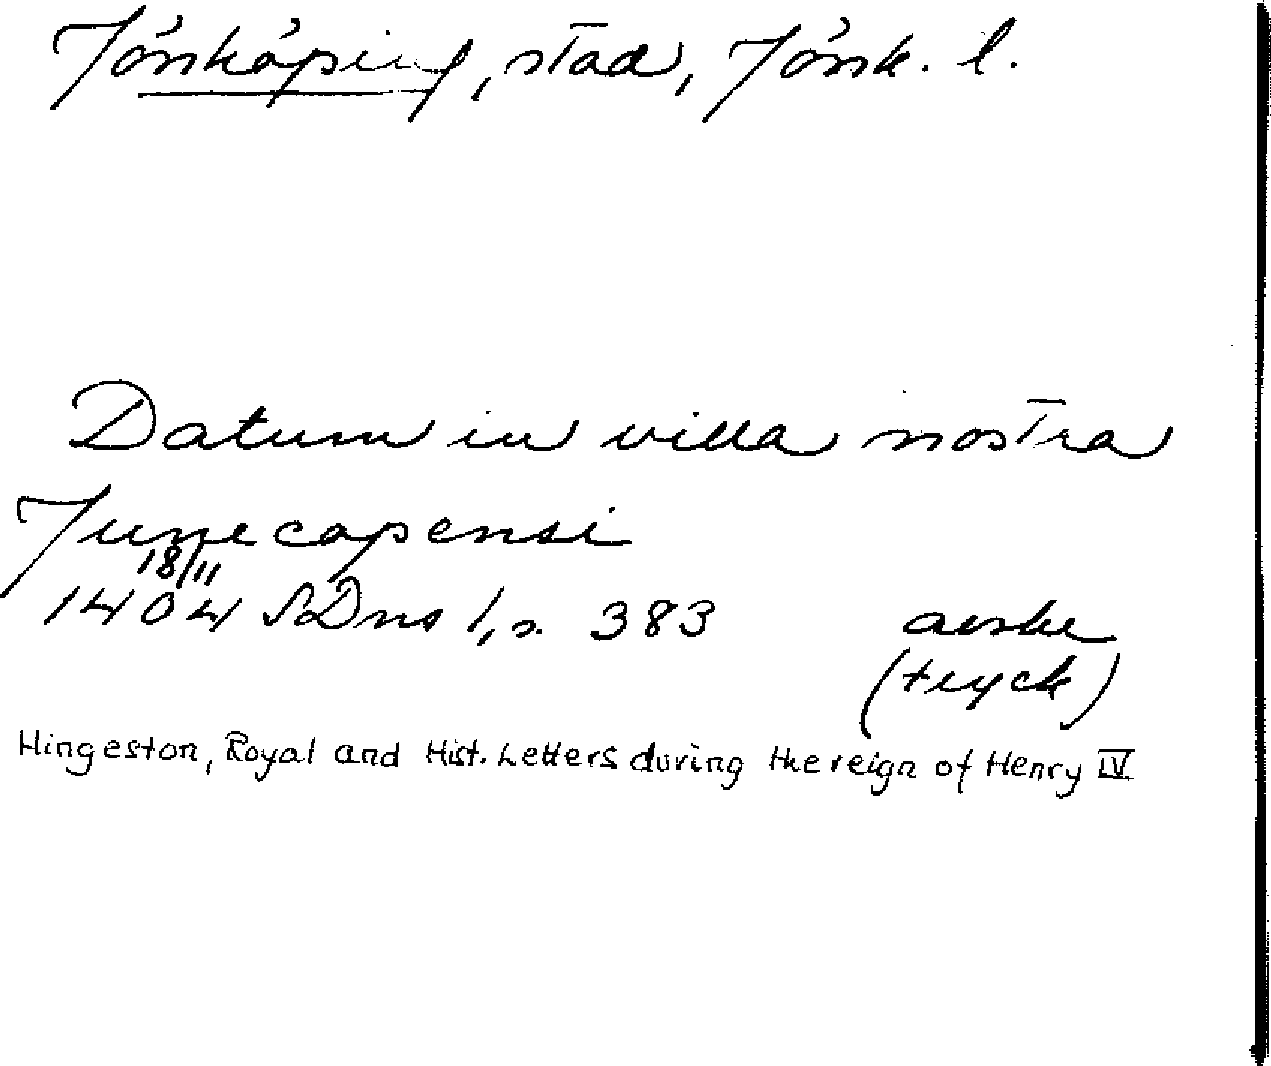 Jönköping, stad, Jönk. l.
Datum in villa nostra
Junecopensi
18/11
1404 SDns 1, s. 383 avskr
(tryck)
Hingeston, Royal and Hist. Letters during the reign of Henry IV